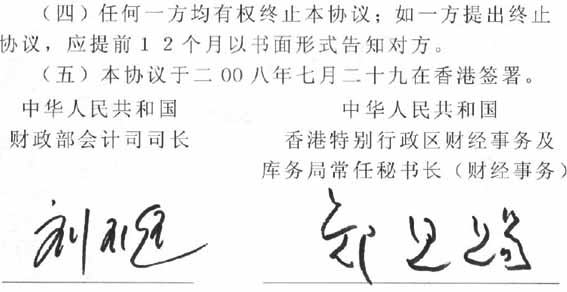 （四）任何一方均有权终止本协议；如一方提出终止
协议，应提前１２个月以书面形式告知对方。
（五）本协议于二00八年七月二十九在香港签署。
中华人民共和国
财政部会计司司长
中华人民共和国
香港特别行政区财经事务及
库务局常任秘书长（财经事务）